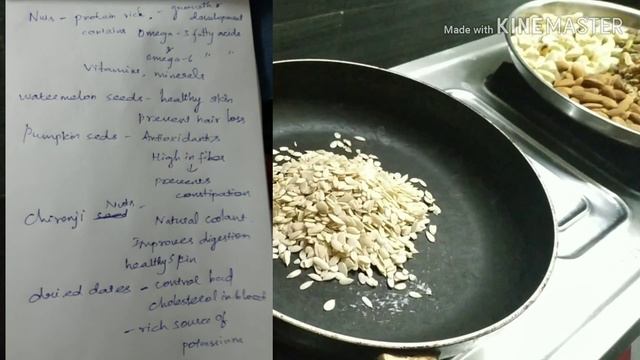 Nuts - protein rich, - growth &
development
contains Omega-3 fatty acids
&
omega-6 " "
Vitamins, minerals
watermelon seeds - healthy skin
Prevent hair loss
Pumpkin seds - Antioxidants
High in fiber
↓
prevents
constipation
Nuts
Chironji seed -
Natural coolant
Improves digestion
healthy skin
dried dates - control bad
cholesterol in blood
- rich source of
potassium
Made with KINEMASTER